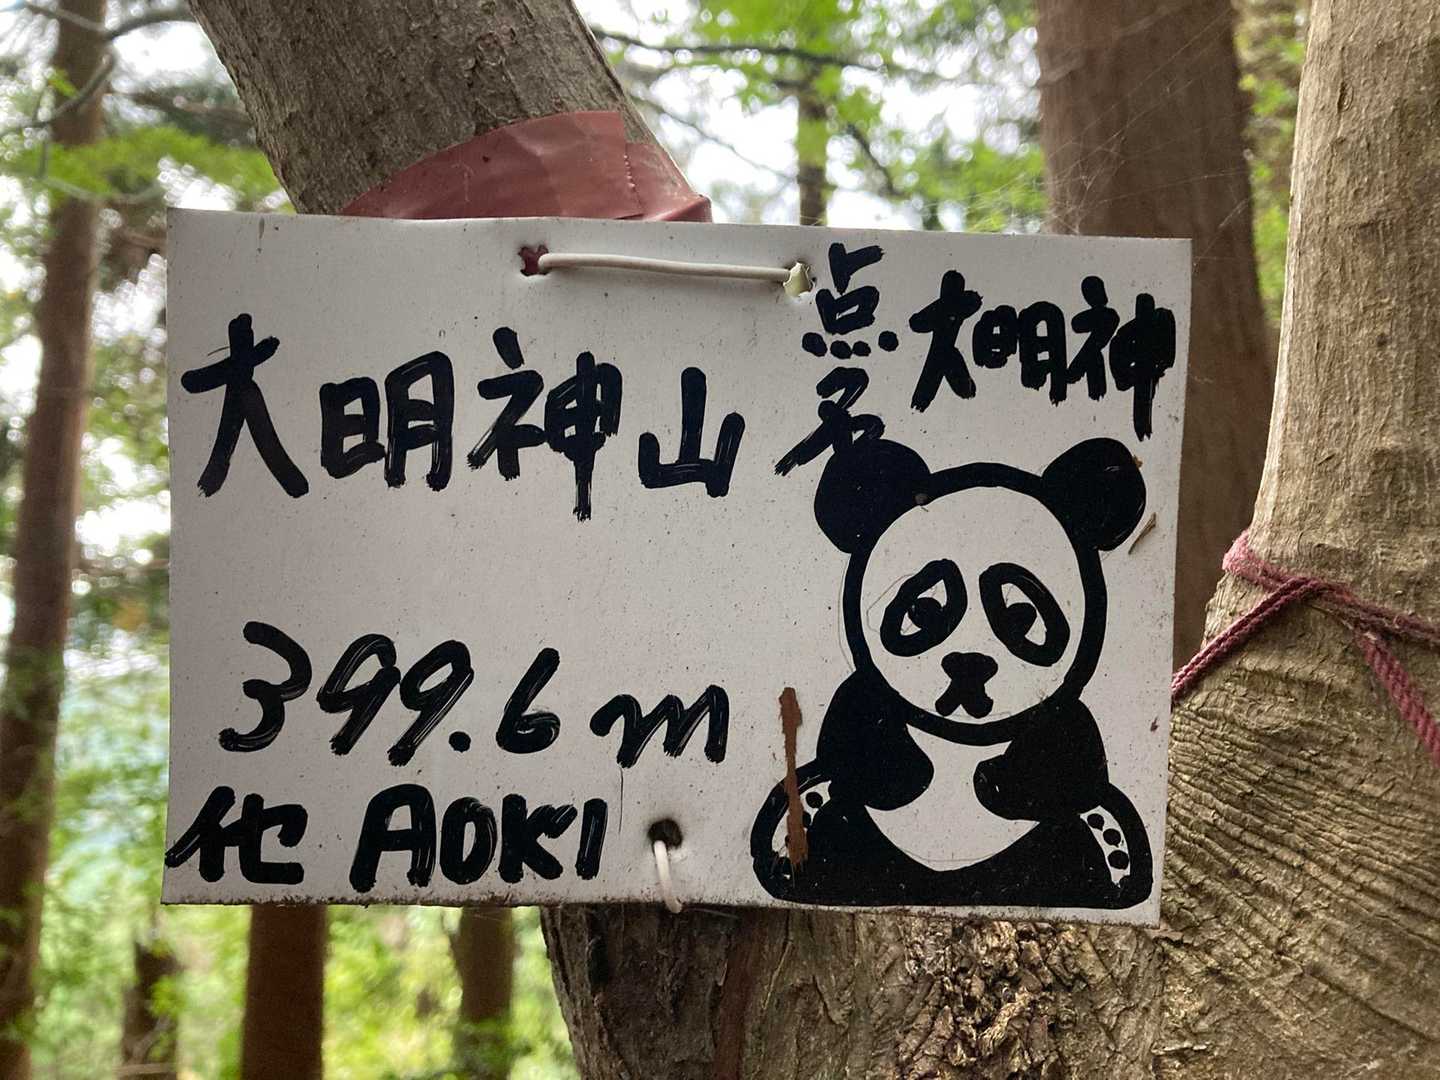 大明神山
点名 大明神
399.6m
化 AOKI